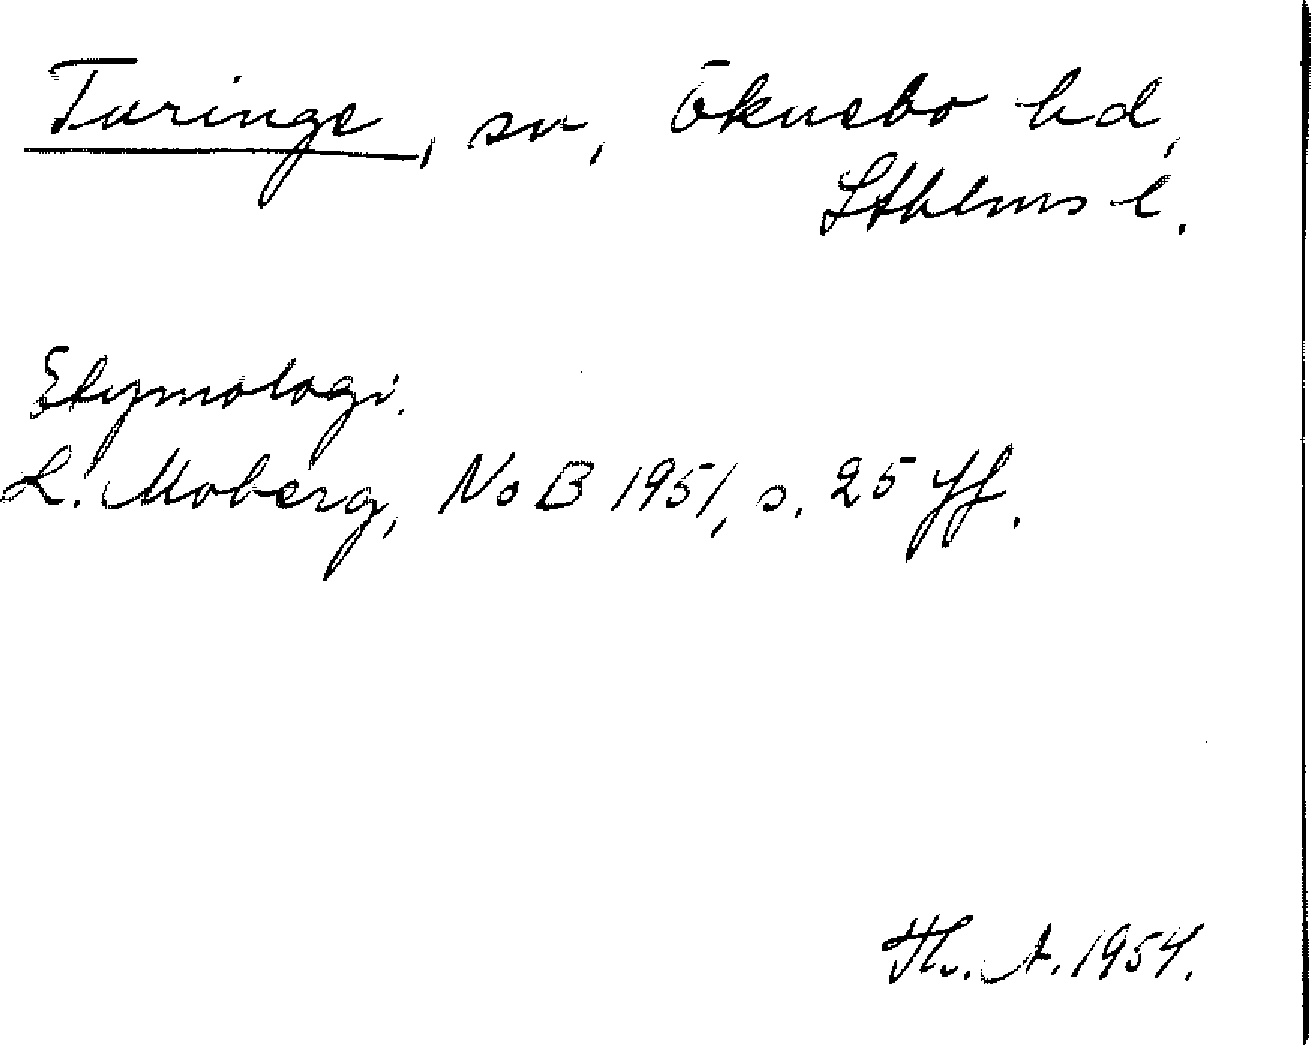 Turinge, sn, Öknebo hd,
Sthlms l.
Etymologi.
L. Moberg, NoB 1951, s. 25 ff.
Th. A. 1954.